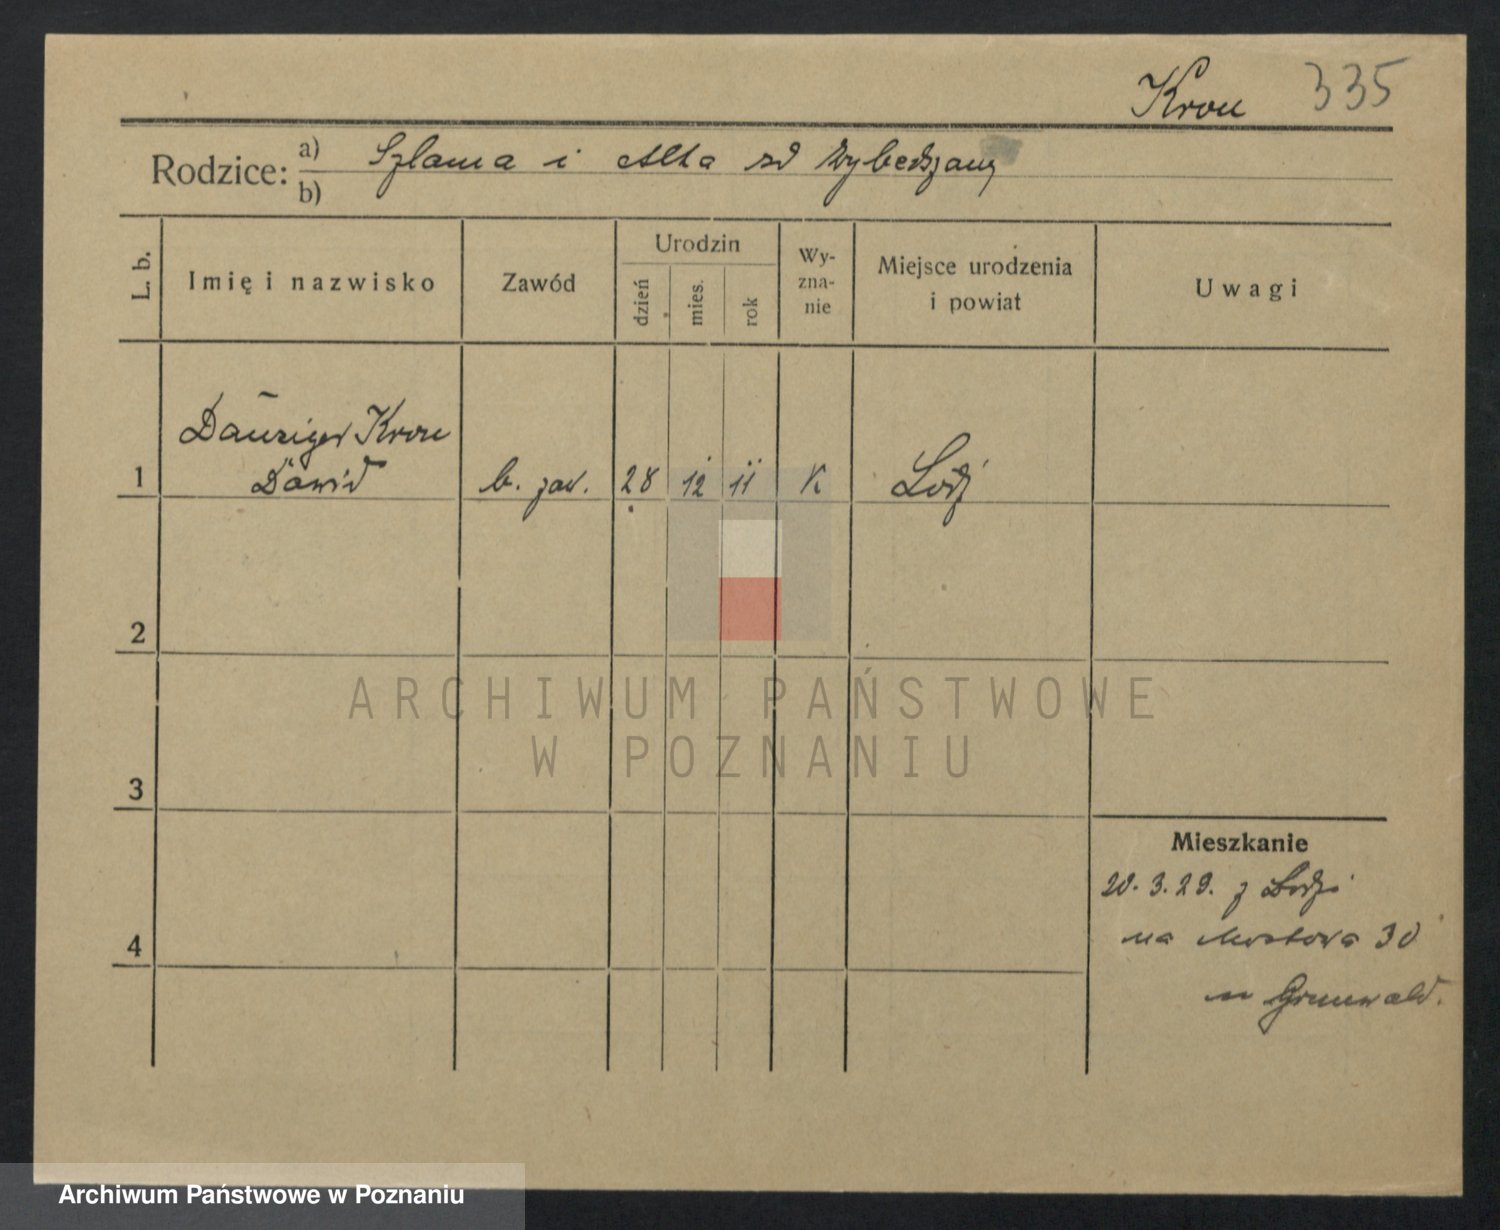 Kron 335
Rodzice: a) Szlama i Alta zd
b)
L. b.
Imię i nazwisko
Zawód
Urodzin
dzień
mies.
rok
Wy-
zna-
nie
Miejsce urodzenia
i powiat
Uwagi
Danziger Kron
1 Dawid b. zaw. 28 12 11 K Łódź
2
3
4
Mieszkanie
20.3.29. z Łodzi
na Mostowa 30
u Grunwald.
ARCHIWUM PAŃSTWOWE
W POZNANIU
Archiwum Państwowe w Poznaniu